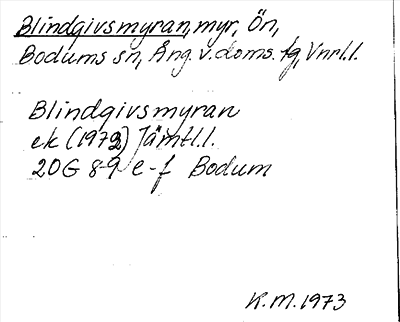 Blindgivsmyran, myr, Ön,
Bodums sn, Ång. v. doms. tg, Vnrl. l.
Blindgivsmyran
ek (1972) Jämtl. l.
20G 8-9 e-f Bodum
K.M. 1973